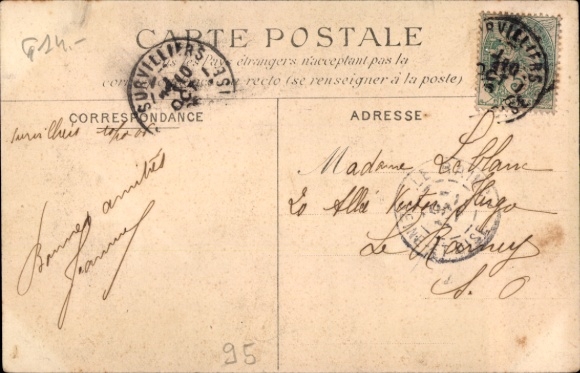 614.-
CARTE POSTALE
Tous les Pays étrangers n'acceptant pas la
correspondance au recto (se renseigner à la poste)
SURVILLIERS
10
OCT
S.-ET-O
SURVILLIERS
10
OCT
CORRESPONDANCE
ADRESSE
Survilliers
Bonnes amitiés
Jeanne
Madame Leblanc
20 Allée Victor Hugo
Le Raincy
S. O
95